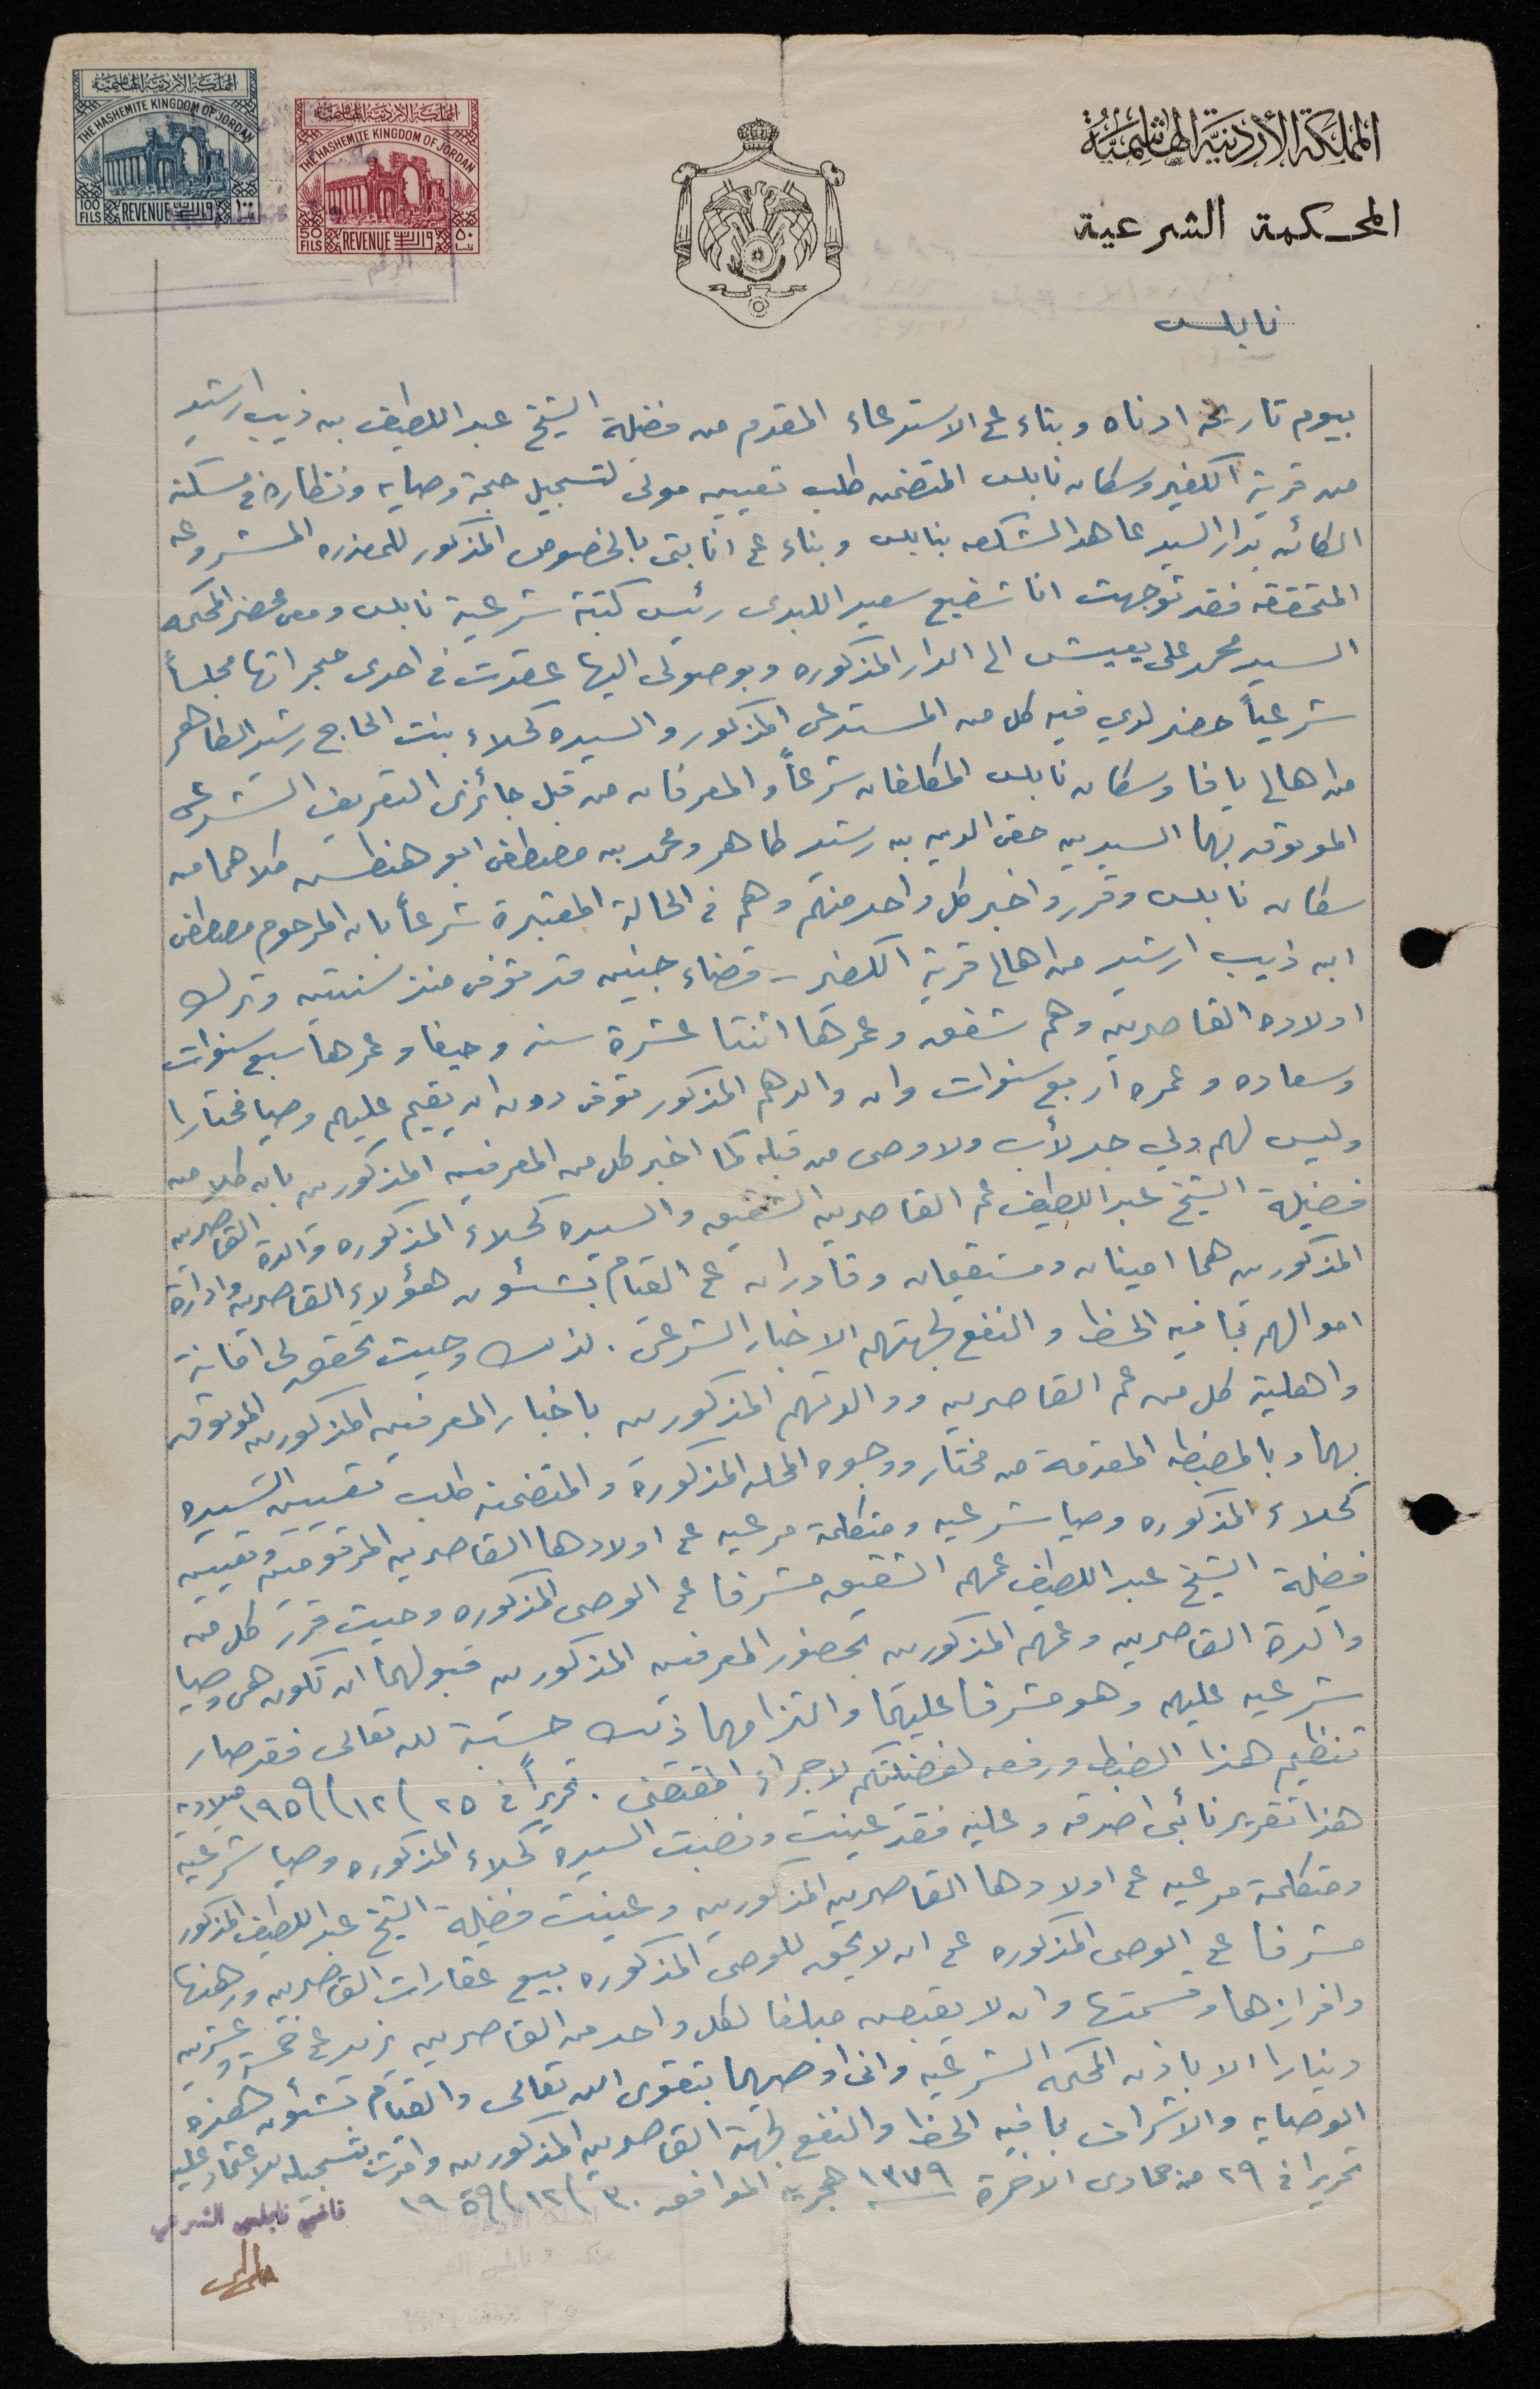 المملكة الأردنية الهاشمية
المحكمة الشرعية
نابلس
المملكة الاردنية الهاشمية
THE HASHEMITE KINGDOM OF JORDAN
100 FILS REVENUE واردات ١٠٠
المملكة الاردنية الهاشمية
THE HASHEMITE KINGDOM OF JORDAN
50 FILS REVENUE واردات ٥٠ فلسا
الرقم
بيوم تاريخه ادناه وبناء على الاستدعاء المقدم من فضيلة الشيخ عبد اللطيف بن ذيب ارشيد
من قرية الكفير وسكان نابلس المتضمن طلب تعيين مولى لتسجيل حجة وصايه ونظاره في مسكنه
الكائن بدار السيد عاهد الشكعه بنابلس وبناء على انابتي بالخصوص المذكور للمعذره المشروعه
المتحققه فقد توجهت انا شفيع سعيد اللبدي رئيس كتبة شرعية نابلس ومعي محضر المحكمه
السيد محمد علي يعيش الى الدار المذكوره وبوصولي اليها عقدت في احدى حجراتها مجلساً
شرعياً حضر لدي فيه كل من المستدعي المذكور والسيده كحلاء بنت الحاج رشيد الطاهر
من اهالي يافا وسكان نابلس المكلفان شرعاً والمعرفان من قبل جائزي التعريف الشرعي
الموثوق بهما السيدين حقي الدين بن رشيد طاهر ومحمد بن مصطفى ابو هنطش كلاهما من
سكان نابلس وقرر واخبر كل واحد منهم وهم في الحالة المعتبرة شرعاً بان المرحوم مصطفى
ابن ذيب ارشيد من اهالي قرية الكفير - قضاء جنين قد توفى منذ سنتين وترك
اولاده القاصرين وهم شفق وعمرها اثنتا عشرة سنه وحيفا وعمرها سبع سنوات
وسعاده وعمره اربع سنوات وان والدهم المذكور توفى دون ان يقيم عليهم وصيا مختارا
وليس لهم ولي جد لأب ولا وصى من قبله كما اخبر كل من المعرفين المذكورين بان كلا من
فضيلة الشيخ عبد اللطيف عم القاصرين الشقيق والسيده كحلاء المذكوره والدة القاصرين
المذكورين هما امينان ومستقيمان وقادران على القيام بشئون هؤلاء القاصرين وادارة
اموالهم بما فيه الحظ والنفع لجهتهم الاخبار الشرعي . لذلك وحيث تحقق لي امانة
واهلية كل من عم القاصرين ووالدتهم المذكورين باخبار المعرفين المذكورين الموثوق
بهما وبالمضبطه المقدمة من مختار ووجوه المحله المذكورة والمتضمنه طلب تعيين السيده
كحلاء المذكوره وصيا شرعيه ومتكلمة مرعيه على اولادها القاصرين المرقومين وتعيين
فضيلة الشيخ عبد اللطيف عمهم الشقيق مشرفا على الوصى المذكوره وحيث قرر كل من
والدة القاصرين وعمهم المذكورين بحضور المعرفين المذكورين قبولهما ان تكون هى وصيا
شرعيه عليهم وهو مشرفا عليها والتزامهما ذلك حسبة لله تعالى فقد صار
تنظيم هذا الضبط ورفعه لفضيلتكم لاجراء المقتضى . تحريراً في ٢٥ / ١٢ / ١٩٥٩ ميلاديه
هذا تقرير نائبى اصدقه وعليه فقد عينت ونصبت السيده كحلاء المذكوره وصيا شرعيه
ومتكلمة مرعيه على اولادها القاصرين المذكورين وعينت فضيلة الشيخ عبد اللطيف المذكور
مشرفا على الوصى المذكوره على ان لا يحق للوصى المذكوره بيع عقارات القاصرين ورهنها
وافرازها وقسمتها وان لا يقبض مبلغا لكل واحد من القاصرين يزيد على خمسة وعشرين
دينارا الا باذن المحكمه الشرعيه وانى اوصيهما بتقوى الله تعالى والقيام بشئون هذه
الوصايه والاشراف بما فيه الحظ والنفع لجهة القاصرين المذكورين وامرت بتسجيله للاعتماد عليه
تحريرا في ٢٩ من جمادى الاخرة ١٣٧٩ هجريه الموافق ٣٠ / ١٢ / ١٩٥٩
قاضي نابلس الشرعي